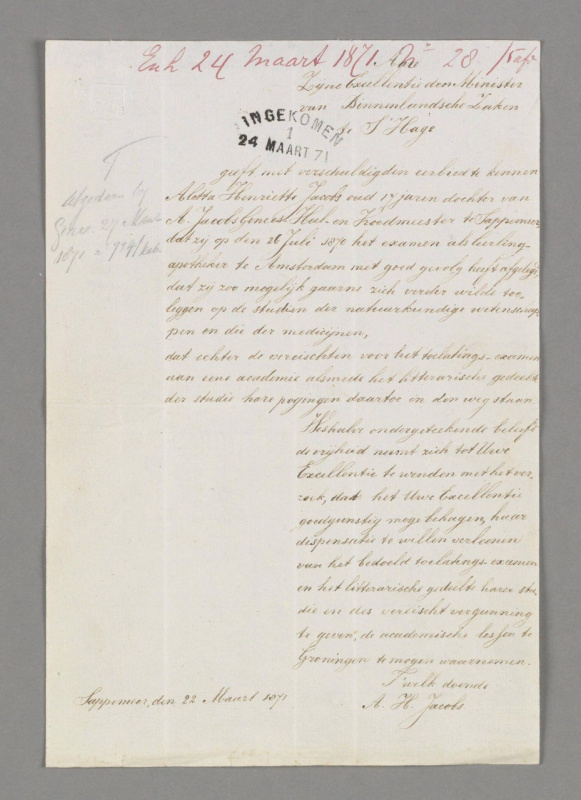 Exh 24 Maart 1871. No 28
Zijne Excellentie den Minister
van Binnenlandsche Zaken
te S'Hage
INGEKOMEN
1
24 MAART 71
geeft met verschuldigden eerbied te kennen
Aletta Henriette Jacobs oud 17 jaren dochter van
A. Jacobs Genees- Heel- en Vroedmeester te Sappemeer,
dat zij op den 26 Juli 1870 het examen als leerling-
apotheker te Amsterdam met goed gevolg heeft afgelegd,
dat zij zoo mogelijk gaarne zich verder wilde toe-
leggen op de studien der natuurkundige wetenschap-
pen en die der medicijnen,
dat echter de vereischten voor het toelatings-examen
aan eene academie alsmede het litterarische gedeelte
der studie hare pogingen daartoe in den weg staan
Weshalve ondergeteekende beleefd
de vrijheid neemt zich tot Uwe
Excellentie te wenden met het ver-
zoek, dat het Uwe Excellentie
goedgunstig moge behagen, haar
dispensatie te willen verleenen
van het bedoeld toelatings-examen
en het litterarische gedeelte harer stu-
die en des vereischt vergunning
te geven, de academische lessen te
Groningen te mogen waarnemen.
T'welk doende
A. H. Jacobs
Sappemeer, den 22 Maart 1871
1871